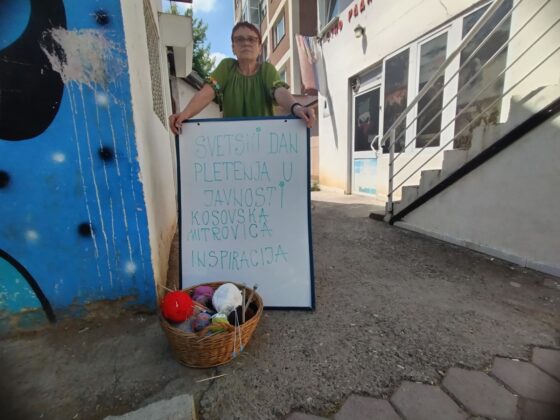 SVETSKI DAN
PLETENJA U
JAVNOSTI
KOSOVSKA
MITROVICA
INSPIRACIJA